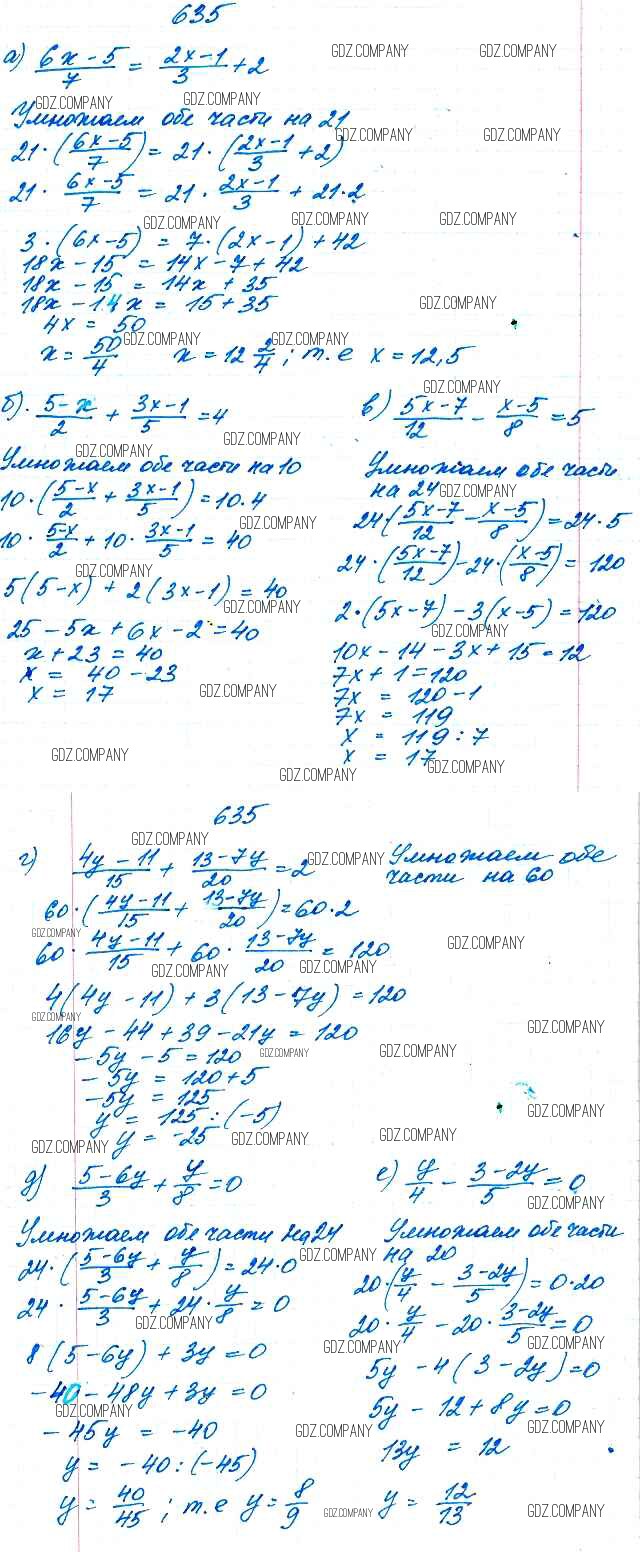 635
а) (6x-5)/7 = (2x-1)/3 + 2
Умножаем обе части на 21
21·((6x-5)/7) = 21·((2x-1)/3 + 2)
21· (6x-5)/7 = 21· (2x-1)/3 + 21·2
3·(6x-5) = 7·(2x-1) + 42
18x - 15 = 14x - 7 + 42
18x - 15 = 14x + 35
18x - 14x = 15 + 35
4x = 50
x = 50/4 x = 12 2/4 ; т.е x = 12,5
б). (5-x)/2 + (3x-1)/5 = 4
Умножаем обе части на 10
10·((5-x)/2 + (3x-1)/5) = 10·4
10· (5-x)/2 + 10· (3x-1)/5 = 40
5(5-x) + 2(3x-1) = 40
25 - 5x + 6x - 2 = 40
x + 23 = 40
x = 40 - 23
x = 17
в) (5x-7)/12 - (x-5)/8 = 5
Умножаем обе части
на 24
24·((5x-7)/12 - (x-5)/8) = 24·5
24·((5x-7)/12) - 24·((x-5)/8) = 120
2·(5x-7) - 3(x-5) = 120
10x - 14 - 3x + 15 = 12
7x + 1 = 120
7x = 120 - 1
7x = 119
x = 119 : 7
x = 17
635
г) (4y-11)/15 + (13-7y)/20 = 2 Умножаем обе
части на 60
60·((4y-11)/15 + (13-7y)/20) = 60·2
60· (4y-11)/15 + 60· (13-7y)/20 = 120
4(4y-11) + 3(13-7y) = 120
16y - 44 + 39 - 21y = 120
-5y - 5 = 120
-5y = 120 + 5
-5y = 125
y = 125 : (-5)
y = -25
д) (5-6y)/3 + y/8 = 0
Умножаем обе части на 24
24·((5-6y)/3 + y/8) = 24·0
24· (5-6y)/3 + 24· y/8 = 0
8(5-6y) + 3y = 0
-40 - 48y + 3y = 0
-45y = -40
y = -40 : (-45)
y = 40/45 ; т.е y = 8/9
е) y/4 - (3-2y)/5 = 0
Умножаем обе части
на 20
20·(y/4 - (3-2y)/5) = 0·20
20· y/4 - 20· (3-2y)/5 = 0
5y - 4(3-2y) = 0
5y - 12 + 8y = 0
13y = 12
y = 12/13
GDZ.COMPANY